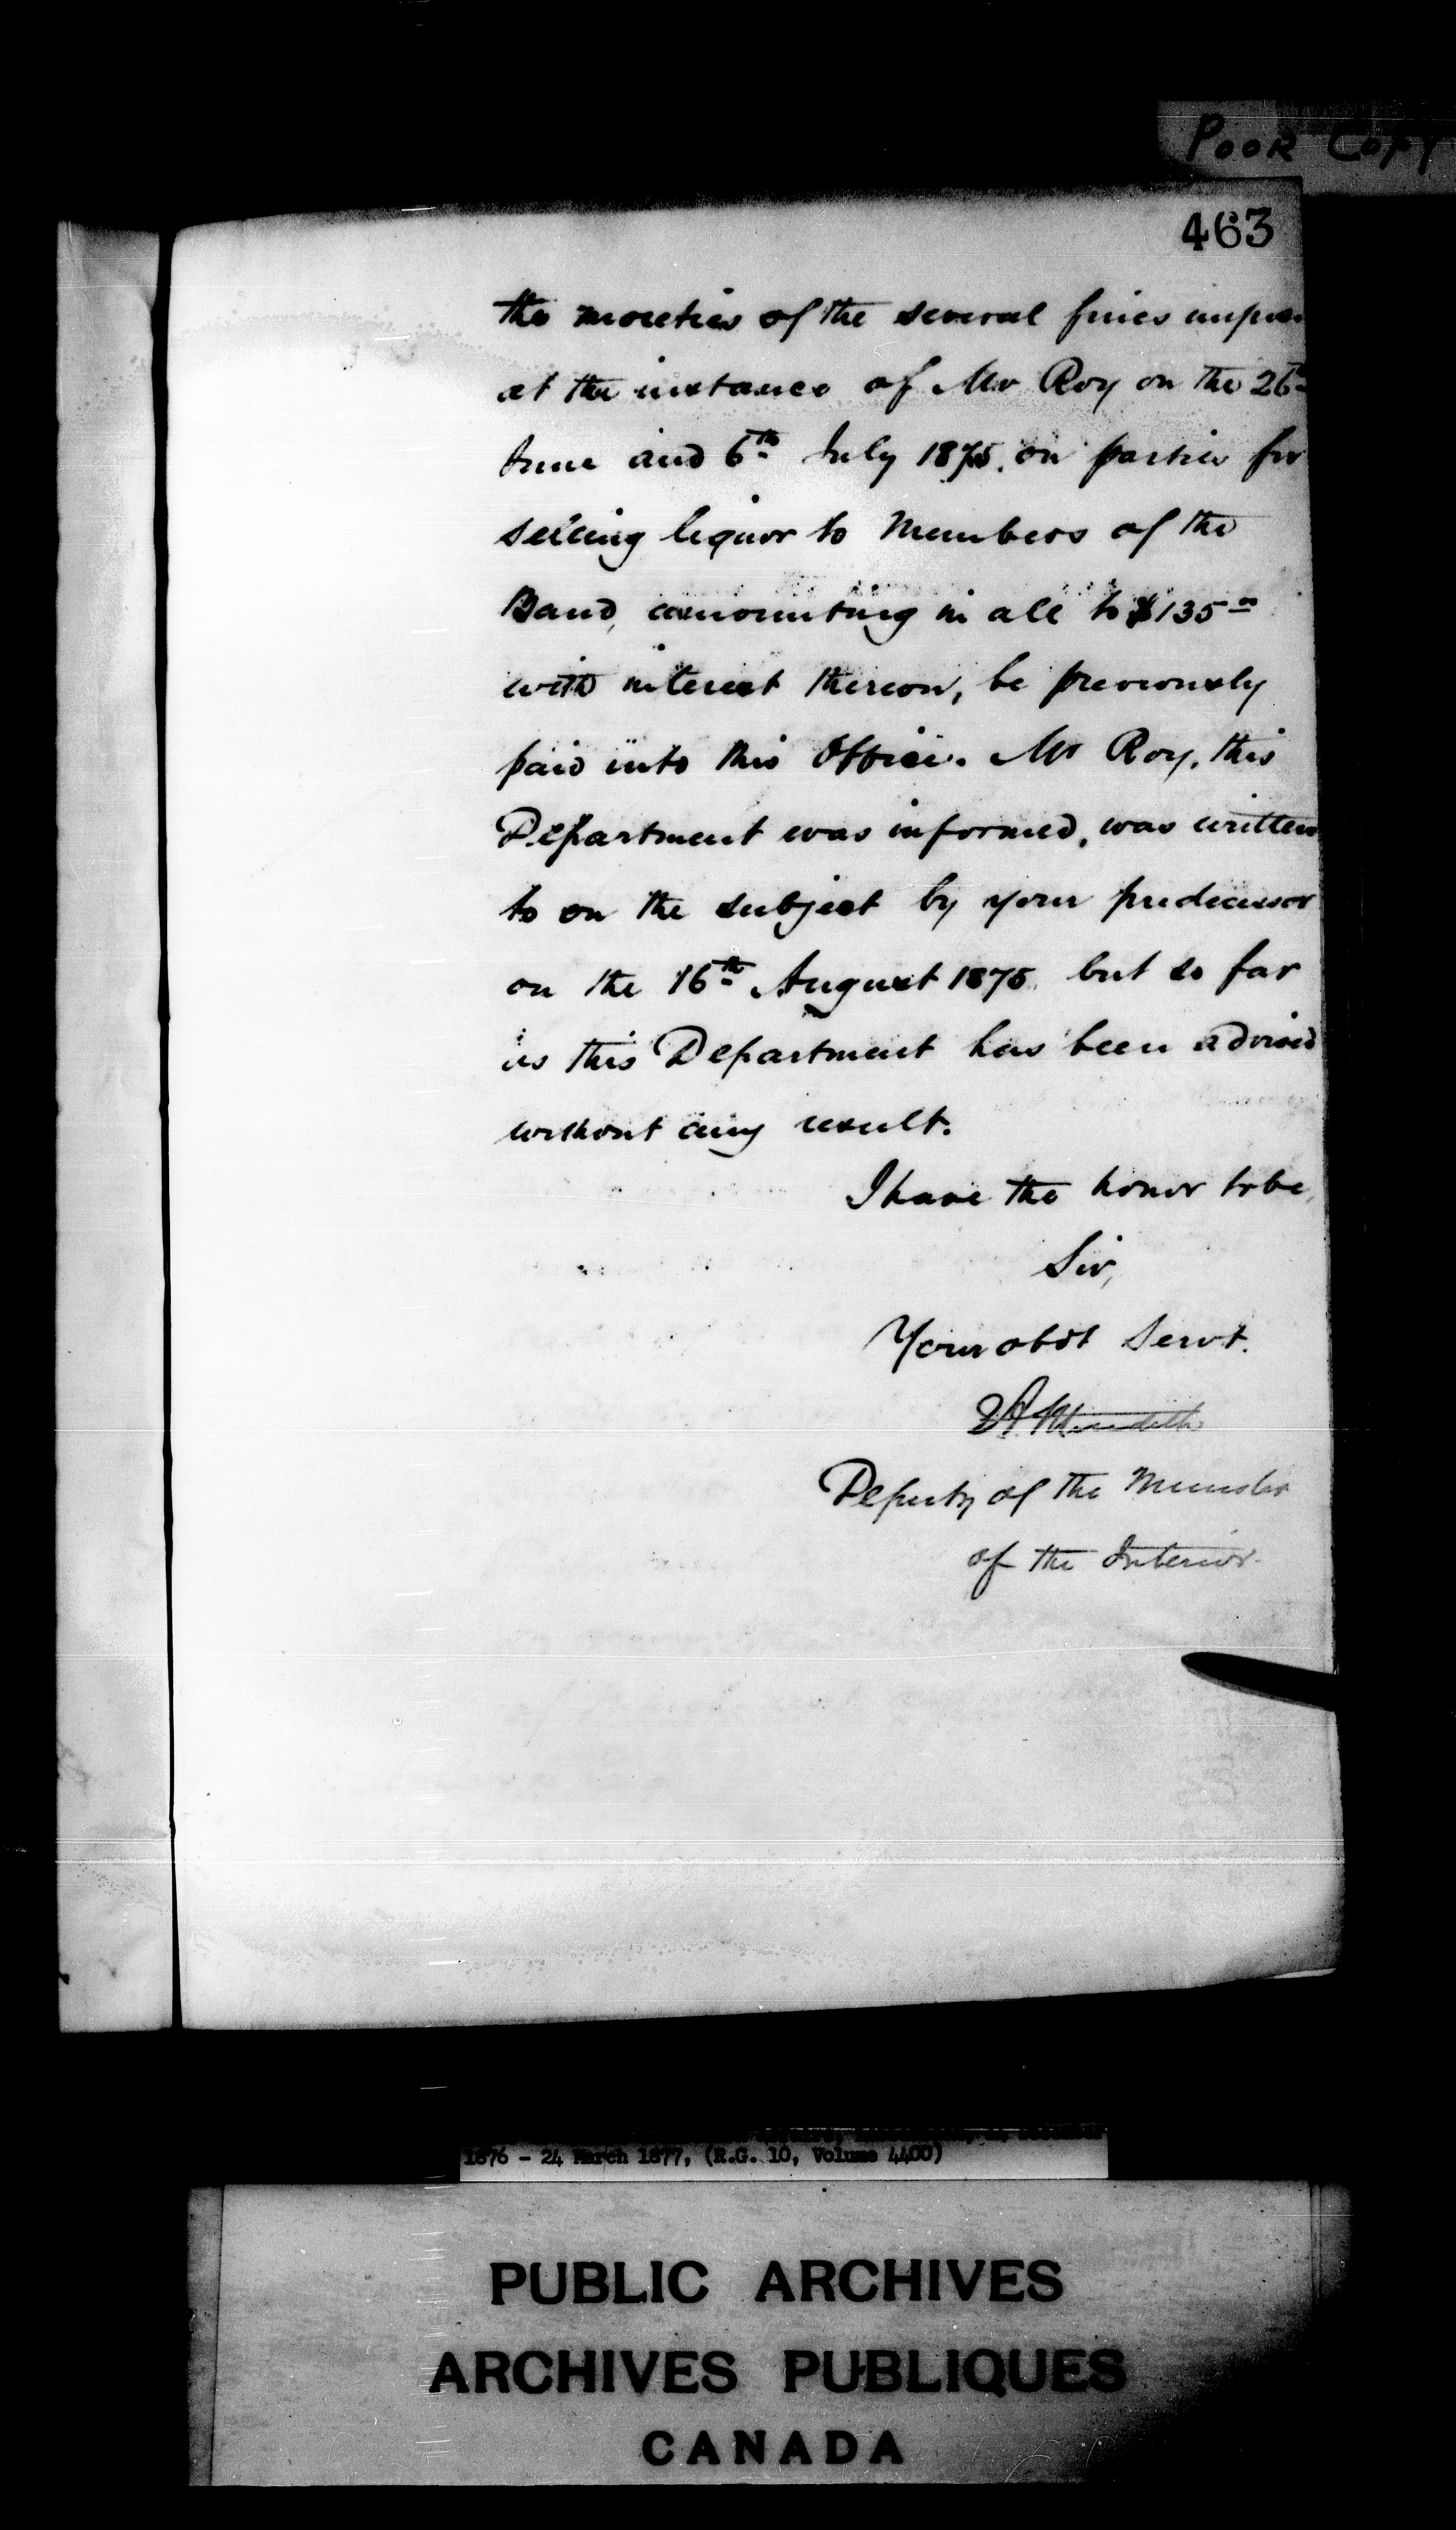 POOR COPY
463
the moieties of the several fines
at the instance of Mr Roy on the 26th
June and 6th July 1875, on parties for
selling liquor to Members of the
Band, amounting in all to $135 00
with interest thereon, be previously
paid into this Office. Mr Roy, this
Department was informed, was written
to on the subject by your predecessor
on the 16th August 1875 but so far
as this Department has been advised
without any result.
I have the honor to be,
Sir,
Your obdt Servt.
EA Meredith
Deputy of the Minister
of the Interior.
1876 - 24 March 1877, (R.G. 10, Volume 4400)
PUBLIC ARCHIVES
ARCHIVES PUBLIQUES
CANADA